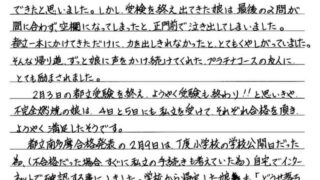 できたと思いました。しかし、受検を終え出てきた娘は最後の2問が
間に合わず、空欄になってしまったと、正門前で泣き出してしまいました。
都立一本にかけてきただけに、力を出しきれなかったと、とてもくやしがっていました。
そんな帰り道、ずっと娘に声をかけ続けてくれた、プラチナコースの友人に
とても励まされました。
2月3日の都立受検を終え、ようやく受験も終わり!!と思いきや、
不完全燃焼の娘は、4日と5日にも私立を受けて、それぞれ合格を頂き、
ようやく満足したそうです。
都立南多摩合格発表の2月9日は、丁度小学校の学校公開日だった
為、(不合格だった場合、すぐに私立の手続きも考えていた為)自宅でインター
ネットで確認する事にしました。学校から帰宅した娘